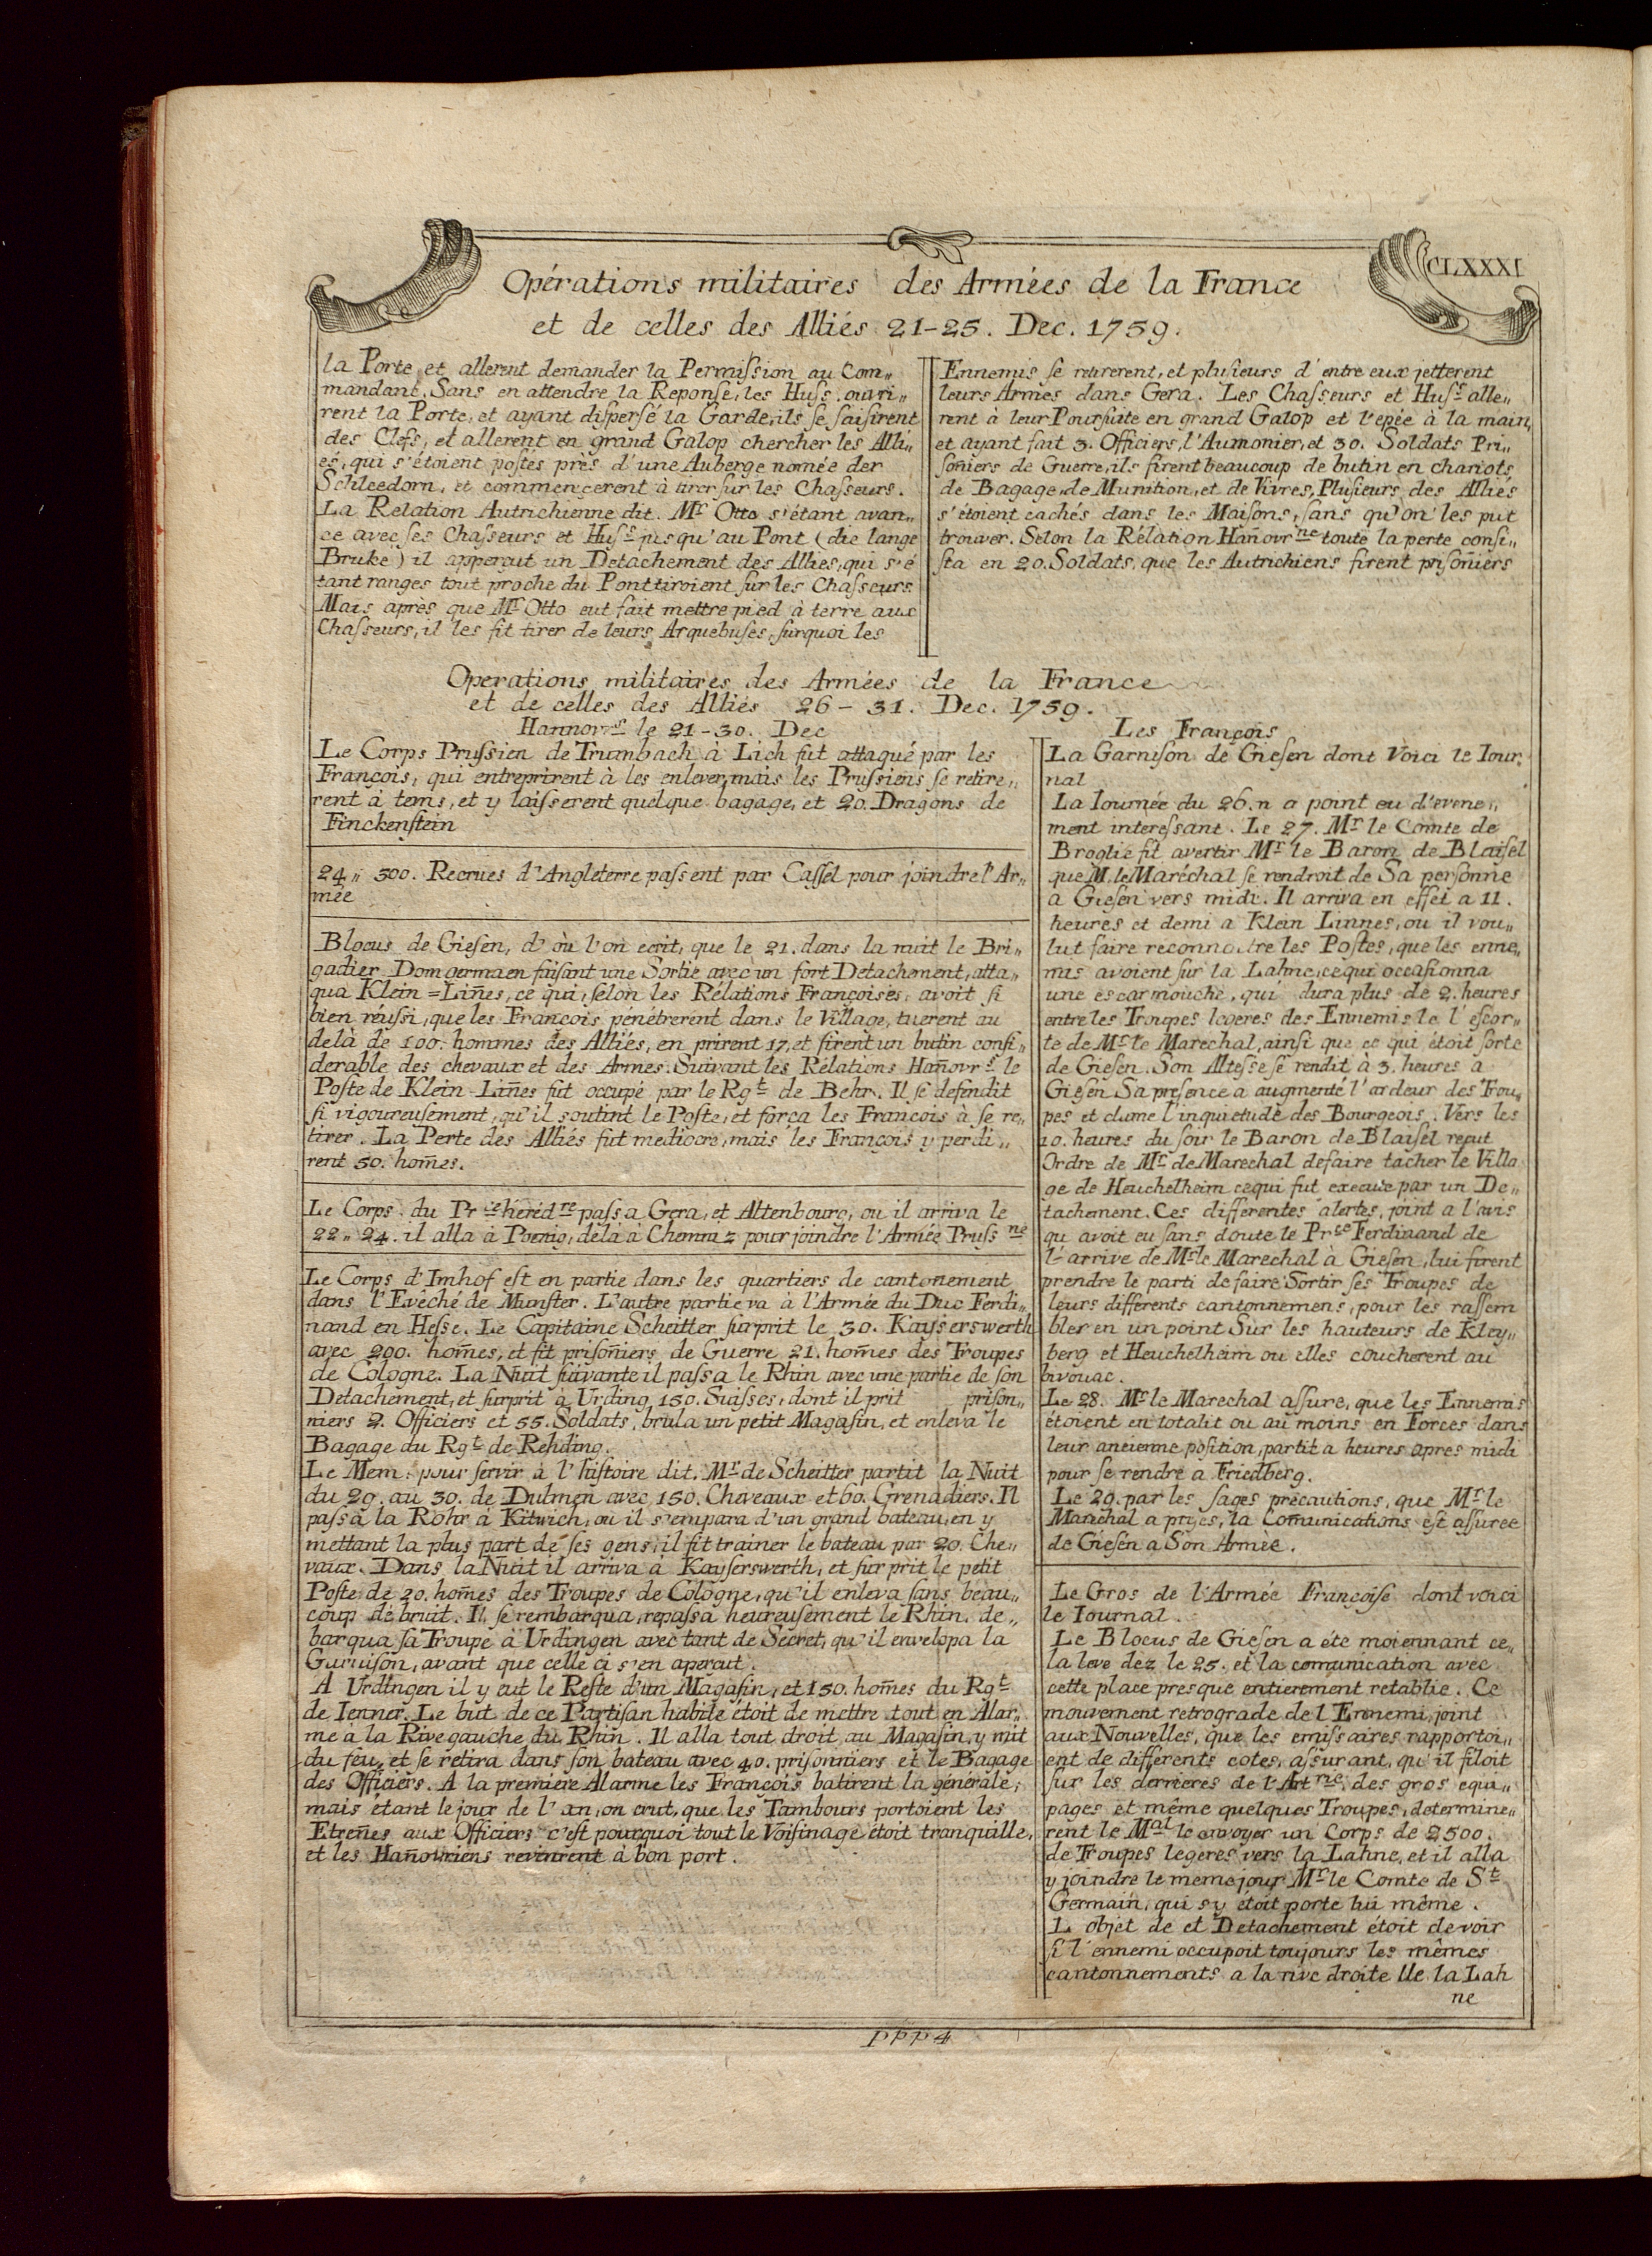 CLXXXI
Opérations militaires des Armées de la France
et de celles des Alliés 21-25. Dec. 1759.
la Porte et allerent demander la Permission au Com„
mandant. Sans en attendre la Reponse, les Huss. ouvri„
rent la Porte, et ayant dispersé la Garde, ils se saisirent
des Clefs, et allerent en grand Galop chercher les Alli„
és, qui s'étoient postés près d'une Auberge nomée der
Schleedorn, et commencerent à tirer sur les Chasseurs.
La Relation Autrichienne dit. Mr Otto s'étant avan„
ce avec ses Chasseurs et Huss jusqu'au Pont (die lange
Bruke) il apperçut un Detachement des Allies, qui s'é
tant ranges tout proche du Pont tiroient sur les Chasseurs.
Mais après que Mr Otto eut fait mettre pied à terre aux
Chasseurs, il les fit tirer de leurs Arquebuses, surquoi les
Ennemis se retirerent, et plusieurs d'entre eux jetterent
leurs Armes dans Gera. Les Chasseurs et Huss alle„
rent à leur Poursuite en grand Galop et l'epée à la main,
et ayant fait 3. Officiers, l'Aumonier, et 30. Soldats Pri„
soñiers de Guerre, ils firent beaucoup de butin en chariots
de Bagage, de Munition, et de Vivres, Plusieurs des Alliés
s'étoient cachés dans les Maisons, sans qu'on les put
trouver. Selon la Rélation Hañovrne toute la perte consi„
sta en 20. Soldats, que les Autrichiens firent prisoñiers
Operations militaires des Armées de la France
et de celles des Alliés 26-31. Dec. 1759.
Hannovrs le 21-30. Dec
Le Corps Prussien de Trumbach à Lich fut attaqué par les
François, qui entreprirent à les enlever, mais les Prussiens se retire„
rent à tems, et y laisserent quelque bagage, et 20. Dragons de
Finckenstein
24„ 300. Recrues d'Angleterre passent par Cassel pour joindre l'Ar„
mée
Blocus de Giesen, d'où l'on ecrit, que le 21. dans la nuit le Bri„
gadier Domgermaen faisant une Sortie avec un fort Detachement, atta„
qua Klein=Liñes, ce qui, selon les Rélations Françoises, avoit si
bien réussi, que les François penétrerent dans le Village, tuerent au
delà de 100. hommes des Alliés, en prirent 17, et firent un butin consi„
derable des chevaux et des Armes. Suivant les Rélations Hañovrs le
Poste de Klein-Liñes fut occupé par le Rgt de Behr. Il se defendit
si vigoureusement, qu'il soutint le Poste, et força les François à se re„
tirer. La Perte des Alliés fut mediocre, mais les François y perdi„
rent 50. hom̃es.
Le Corps du Prce héréd re passa Gera, et Altenbourg, ou il arriva le
22„ 24. il alla à Poenig, délà à Chemniz pour joindre l'Armée Pruss ne
Le Corps d'Imhof est en partie dans les quartiers de cantonement
dans l'Evêché de Munster. L'autre partie va à l'Armée du Duc Ferdi„
nand en Hesse. Le Capitaine Scheitter surprit le 30. Kayserswerth
avec 200. hom̃es, et fit prisoñiers de Guerre 21. hom̃es des Troupes
de Cologne. La Nuit suivante il passa le Rhin avec une partie de son
Detachement, et surprit à Urding 150. Suisses, dont il prit prison„
niers 2. Officiers et 55. Soldats, brula un petit Magasin, et enleva le
Bagage du Rgt de Rehding.
Le Mem. pour servir à l'histoire dit. Mr de Scheitter partit la Nuit
du 29. au 30. de Dulmen avec 150. Cheveaux et 60. Grenadiers. Il
passa la Röhr à Kitwich, ou il s'empara d'un grand bateau, en y
mettant la plus part de ses gens, il fit trainer le bateau par 20. Che„
vaux. Dans la Nuit il arriva à Kayserswerth, et surprit le petit
Poste de 20. hom̃es des Troupes de Cologne, qu'il enleva sans beau„
coup de bruit. Il se rembarqua, repassa heureusement le Rhin, de„
barqua sa Troupe à Urdingen avec tant de Secret, qu'il envelopa la
Garnison, avant que celle ci s'en aperçut.
A Urdingen il y eut le Reste d'un Magasin, et 150. hom̃es du Rgt
de Jenner. Le but de ce Partisan habile étoit de mettre tout en Alar„
me à la Rive gauche du Rhin. Il alla tout droit au Magasin, y mit
du feu, et se retira dans son bateau avec 40. prisonniers et le Bagage
des Officiers. A la premiere Alarme les François batirent la générale,
mais étant le jour de l'an, on crut, que les Tambours portoient les
Etreñes aux Officiers c'est pourquoi tout le Voisinage étoit tranquille,
et les Hañovriens revinrent à bon port.
Les François
La Garnison de Giesen dont Voici le Iour„
nal
La Iournée du 26. n a point eu d'evene„
ment interessant. Le 27. Mr le Comte de
Broglie fit avertir Mr le Baron de Blaisel
que M. le Maréchal se rendroit de Sa personne
a Giesen vers midi. Il arriva en effet a 11.
heures et demi a Klein Linnes, ou il vou„
lut faire reconnoitre les Postes, que les enne„
mis avoient sur la Lahne, ce qui occasionna
une escarmouche, qui dura plus de 2. heures
entre les Troupes legeres des Ennemis le l'escor„
te de Mr le Marechal, ainsi que ce qui étoit sorte
de Giesen. Son Altesse se rendit à 3. heures a
Giesen Sa presence a augmenté l'ardeur des Trou„
pes et clame l'inquietude des Bourgeois. Vers les
10. heures du soir le Baron de Blaisel reçut
Ordre de Mr de Marechal de faire tacher le Villa
ge de Heuchelheim ce qui fut execute par un De„
tachement. Ces differentes alertes, joint a l'avis
qu avoit eu sans doute le Prce Ferdinand de
l'arrive de Mr le Marechal à Giesen, lui firent
prendre le parti de faire Sortir ses Troupes de
leurs differents cantonnemens, pour les rassem
bler en un point Sur les hauteurs de Kley„
berg et Heuchelheim ou elles coucherent au
bivouac.
Le 28. Mr le Marechal assure, que les Ennemis
étoient en totalit ou au moins en Forces dans
leur ancienne position, partit a heures apres midi
pour se rendre a Friedberg.
Le 29. par les sages précautions, que Mr le
Marechal a prises, la Com̃unications est assuree
de Giesen a Son Armée.
Le Gros de l'Armée Françoise dont voici
le Iournal.
Le Blocus de Giesen a éte moiennant ce„
la leve dez le 25. et la comunication avec
cette place presque entierement retablie. Ce
mouvement retrograde de l Ennemi, joint
aux Nouvelles, que les emissaires rapportoi„
ent de differents cotes, assurant, qu'il filoit
sur les derrieres de l'Art rie, des gros equi„
pages et même quelques Troupes, determine„
rent le Mal le envoyer un Corps de 2500.
de Troupes legeres vers la Lahne, et il alla
y joindre le meme jour Mr le Comte de St
Germain, qui s y étoit porte lui même.
L objet de et Detachement étoit de voir
si l'ennemi occupoit toujours les mêmes
cantonnements a la rive droite lle la Lah
ne
PPP4